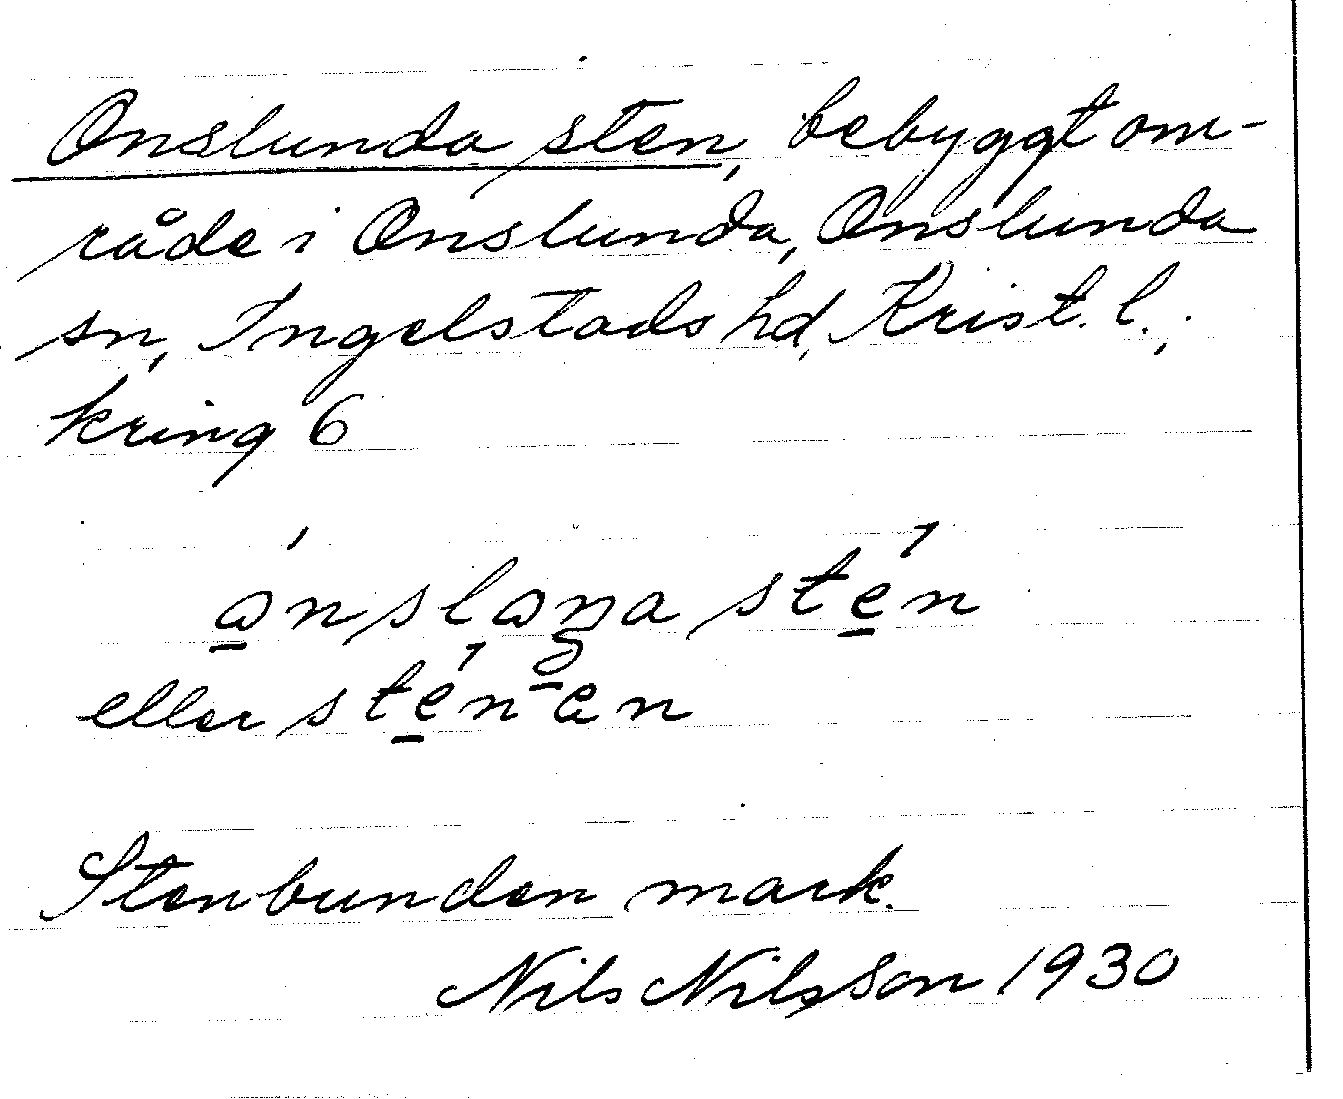 Onslunda sten, bebyggt om-
råde i Onslunda, Onslunda
sn, Ingelstads hd, Krist. l.,
kring 6
ånslåna stén
eller sténen
Stenbunden mark.
Nils Nilsson 1930